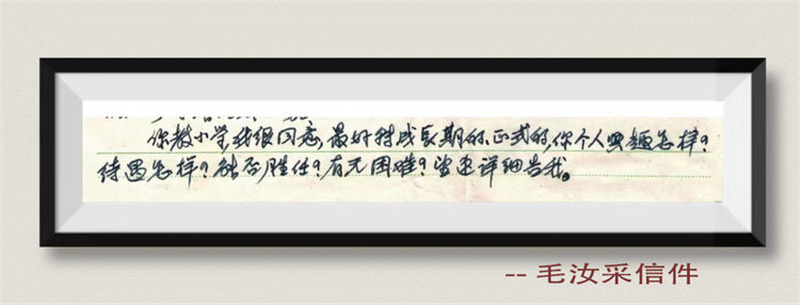 你教小学我很同意,最好转成长期的、正式的,你个人兴趣怎样?
待遇怎样?能否胜任?有无困难?望还详细告我。
-- 毛汝采信件